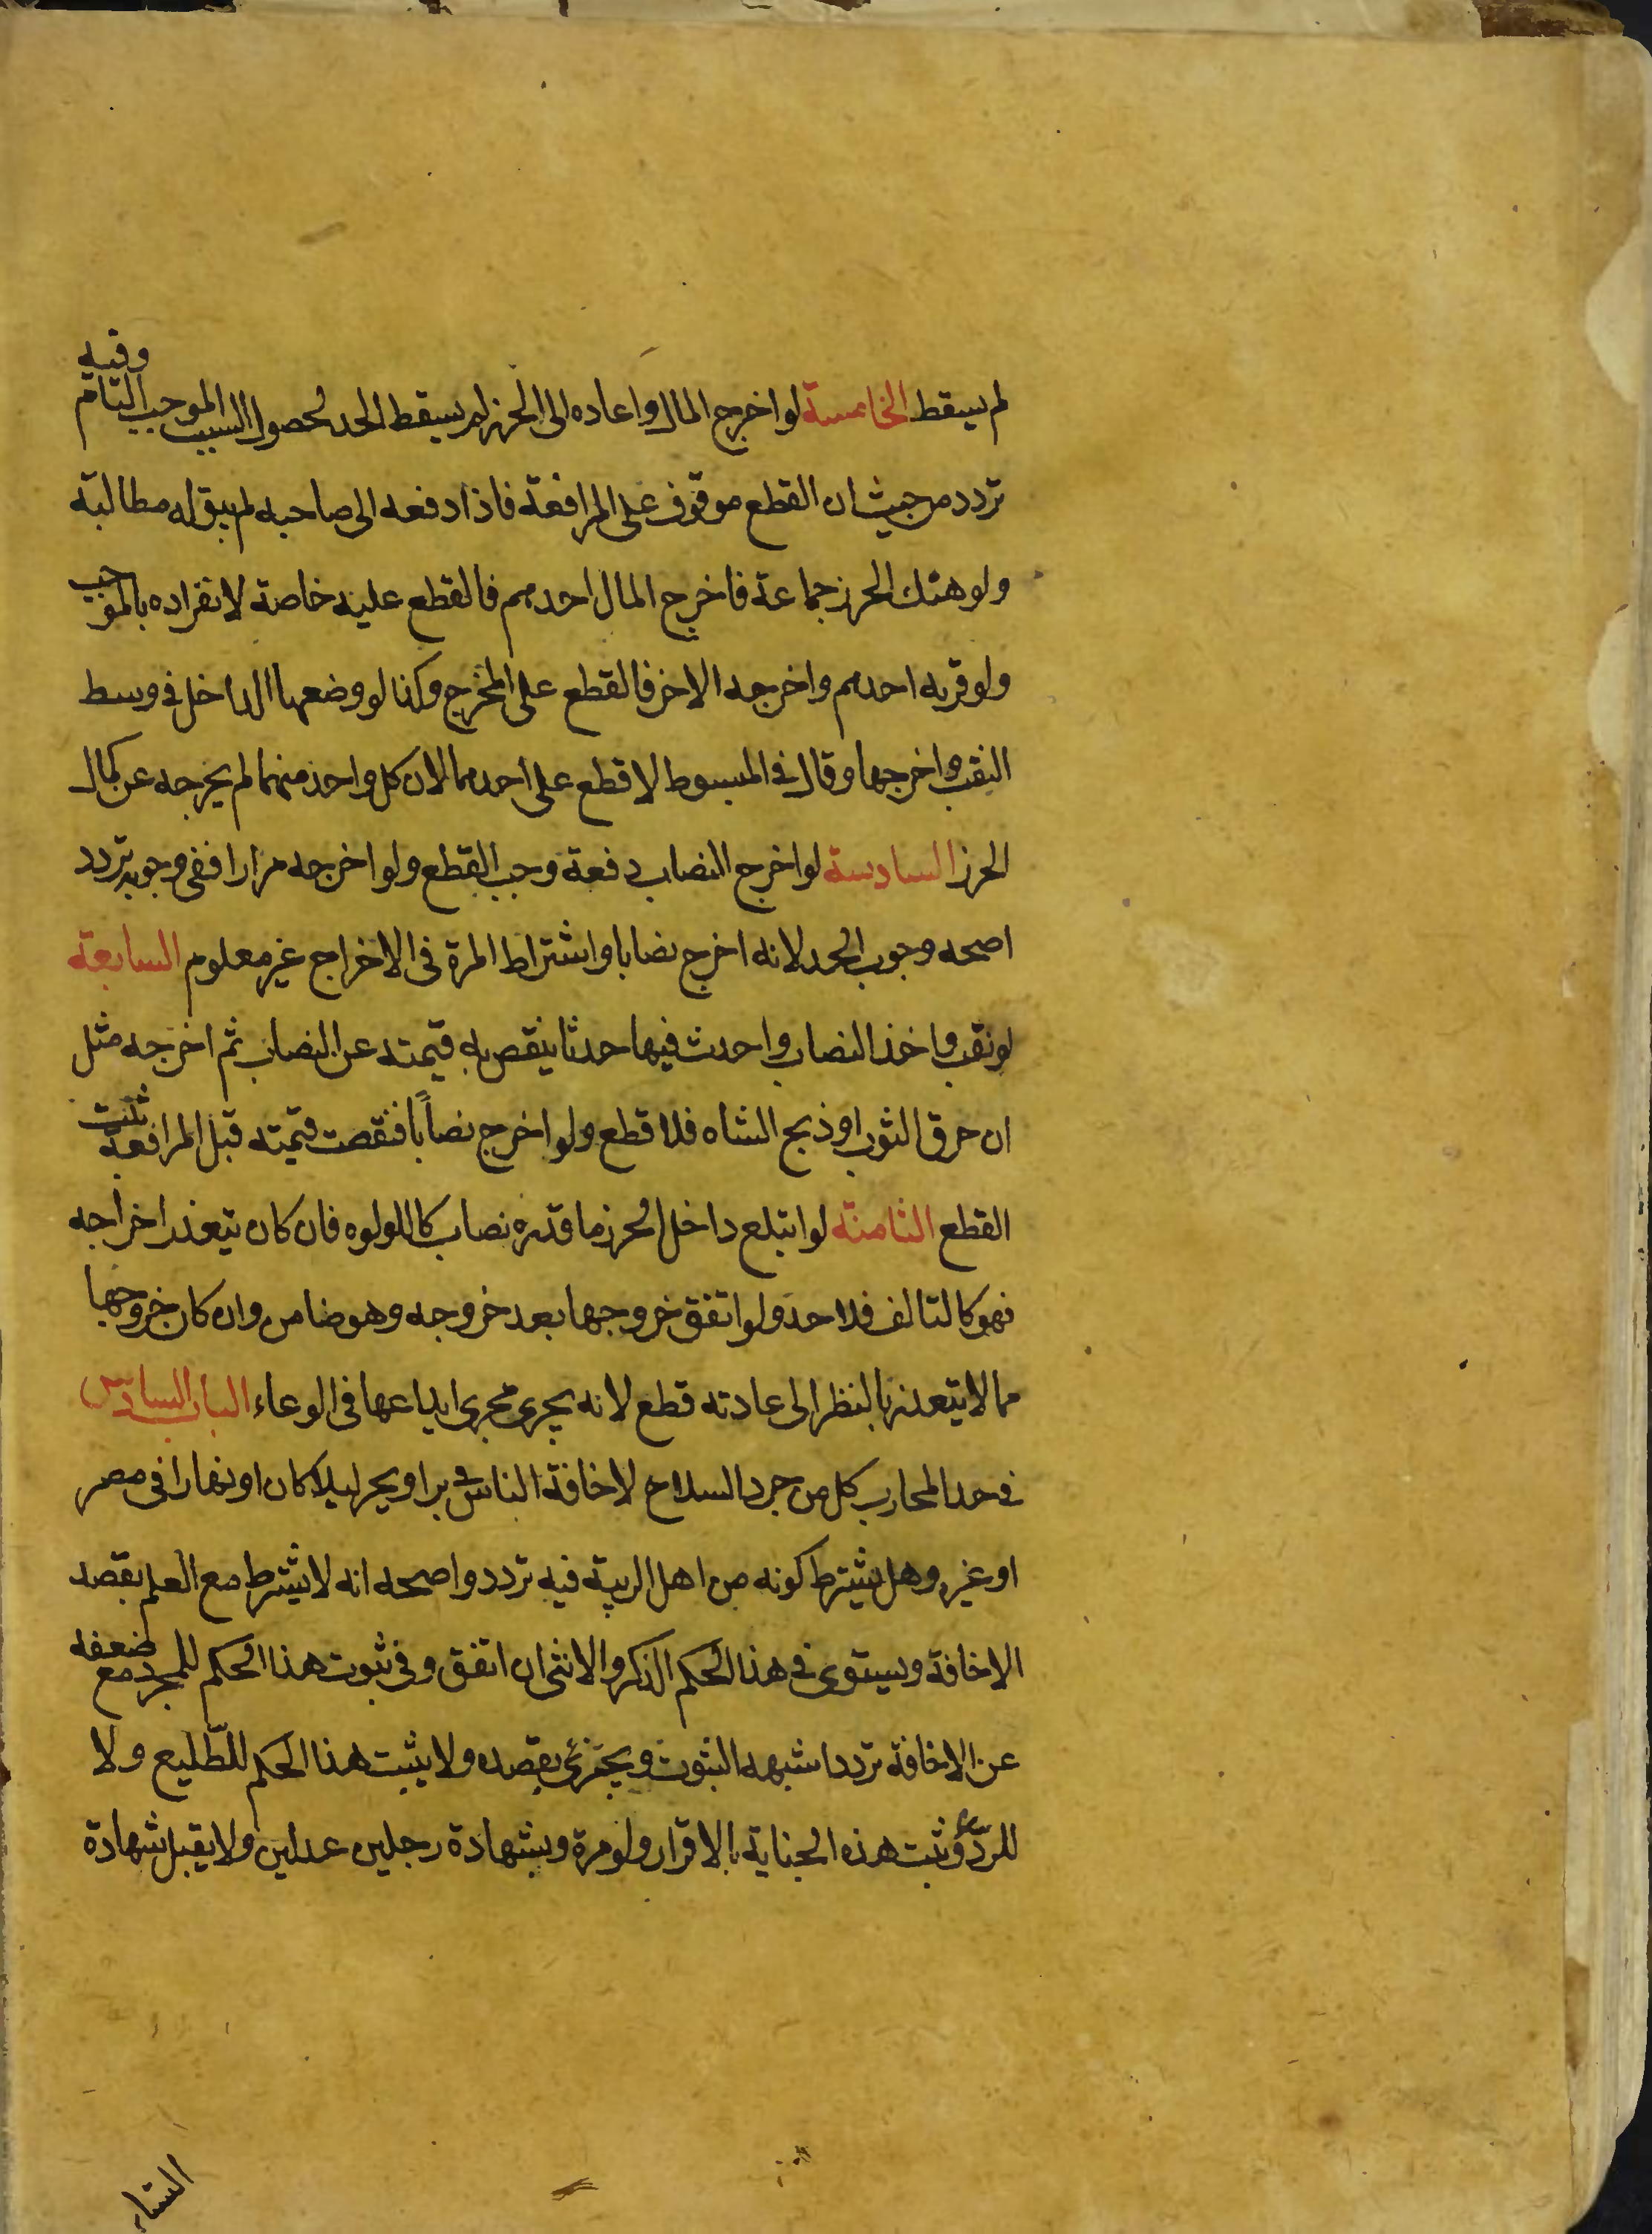 لم يسقط الخامسة لو اخرج المال واعاده الى الحرز لم يسقط الحد لحصول السبب الموجب التام وفيه
تردد من حيث ان القطع موقوف على المرافعة فاذا دفعه الى صاحبه لم يبق له مطالبة
ولو هتك الحرز جماعة فاخرج المال احدهم فالقطع عليه خاصة لانفراده بالموجب
ولو قربه احدهم واخرجه الاخر فالقطع على المخرج وكذا لو وضعها الداخل في وسط
النقب واخرجها وقال في المبسوط لا قطع على احدهما لان كل واحد منهما لم يخرجه عن كمال
الحرز السادسة لو اخرج النصاب دفعة وجب القطع ولو اخرجه مرارا ففي وجوبه تردد
اصحه وجوب الحد لانه اخرج نصابا واشتراط المرة في الاخراج غير معلوم السابعة
لو نقب واخذ النصاب واحدث فيها حدثا ينقص به قيمته عن النصاب ثم اخرجه مثل
ان حرق الثوب او ذبح الشاه فلا قطع ولو اخرج نصاباً فنقصت قيمته قبل المرافعة ثبت
القطع الثامنة لو ابتلع داخل الحرز ما قدره نصاب كاللولوه فان كان يتعذر اخراجه
فهو كالتالف فلا حد ولو اتفق خروجها بعد خروجه وهو ضامن وان كان خروجها
مما لا يتعذر بالنظر الى عادته قطع لانه يجري مجرى ايداعها في الوعاء الباب السادس
في حد المحارب كل من جرد السلاح لاخافة الناس في بر او بحر ليلا كان او نهارا في مصر
او غيره وهل يشترط كونه من اهل الريبة فيه تردد واصحه انه لا يشترط مع العلم بقصد
الاخافة ويستوى في هذا الحكم الذكر والانثى ان اتفق وفي ثبوت هذا الحكم للمجرد مع ضعفه
عن الاخافة تردد اشبهه الثبوت ويجتزئ بقصده ولا يثبت هذا الحكم للطّليع ولا
للردّء وتثبت هذه الجناية بالاقرار ولو مرة وبشهادة رجلين عدلين ولا يقبل شهادة